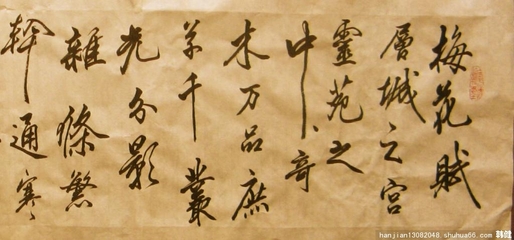 梅花賦
層城之宮
靈苑之
中奇
木万品庶
草千叢
光分影
雜條繁
幹通寒
hanjian13082048.shuhua66.com 韩健